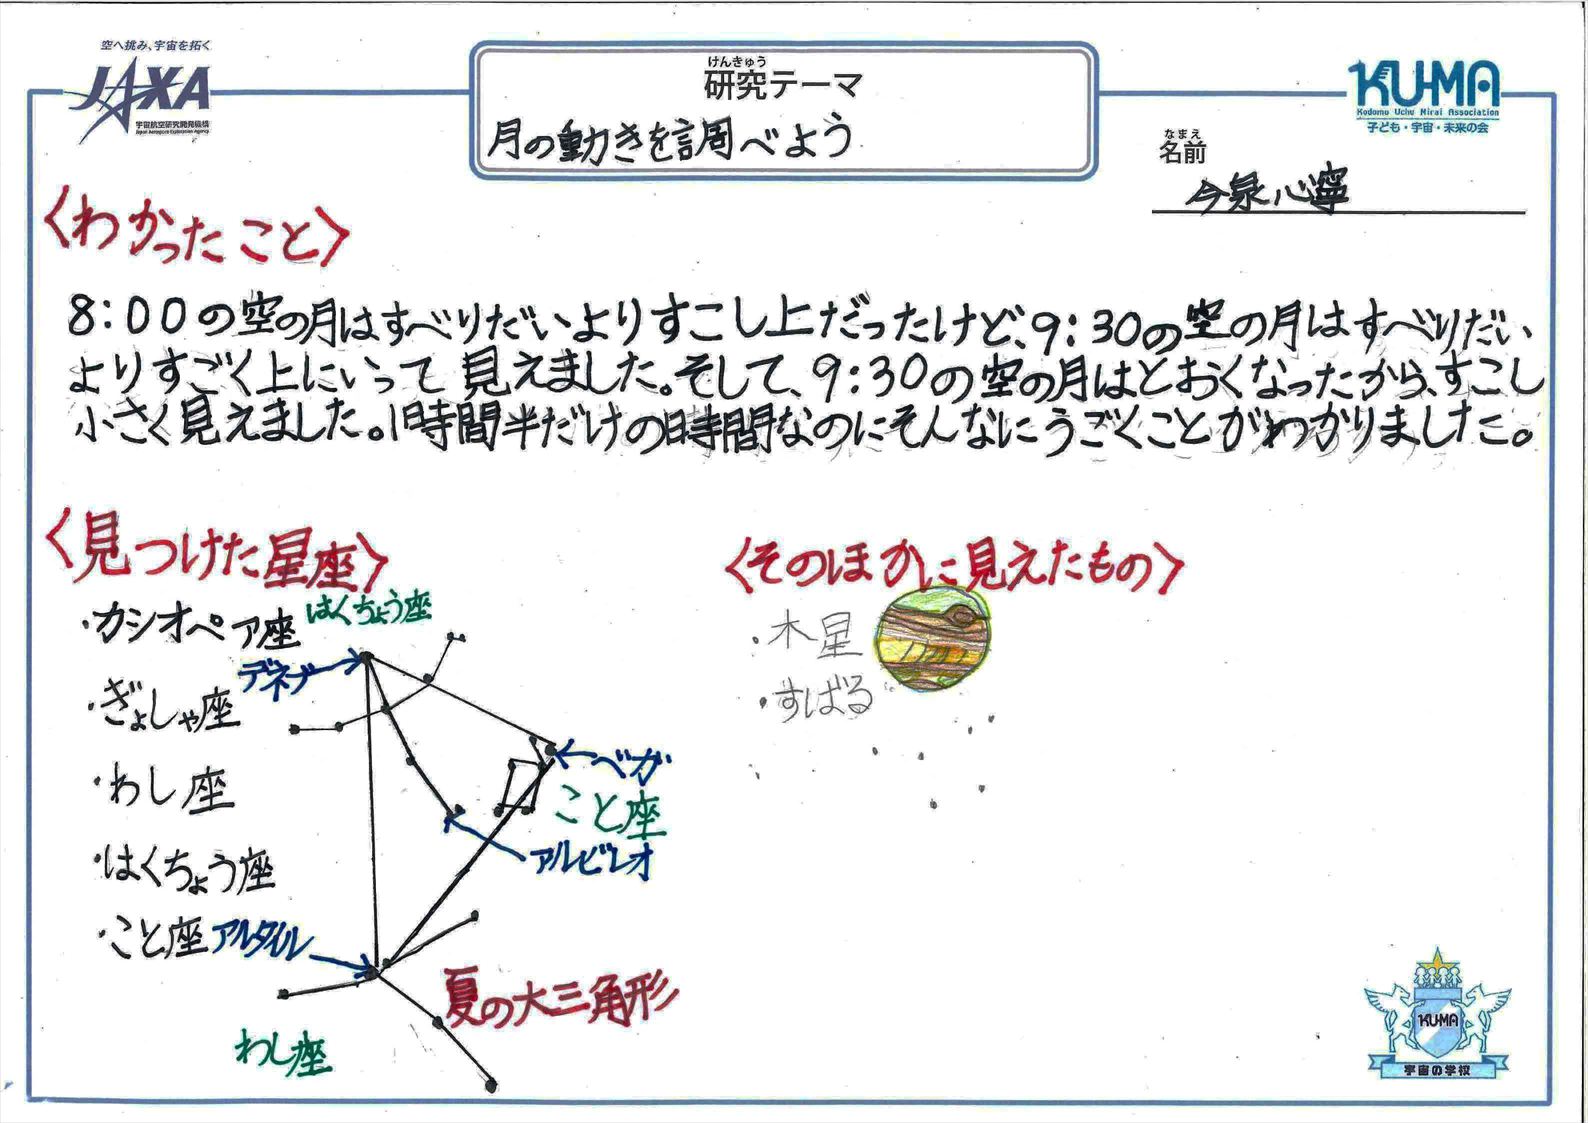 空へ挑み、宇宙を拓く
JAXA
宇宙航空研究開発機構
Japan Aerospace Exploration Agency
けんきゅう
研究テーマ
月の動きを調べよう
KUMA
Kodomo Uchu Mirai Association
子ども・宇宙・未来の会
なまえ
名前
今泉心寧
〈わかったこと〉
8:00の空の月はすべりだいよりすこし上だったけど、9:30の空の月はすべりだい
よりすごく上にいって見えました。そして、9:30の空の月はとおくなったから、すこし
小さく見えました。1時間半だけの時間なのにそんなにうごくことがわかりました。
〈見つけた星座〉
・カシオペア座
・ぎょしゃ座
・わし座
・はくちょう座
・こと座
はくちょう座
デネブ
ベガ
こと座
アルビレオ
アルタイル
夏の大三角形
わし座
〈そのほかに見えたもの〉
・木星
・すばる
KUMA
宇宙の学校